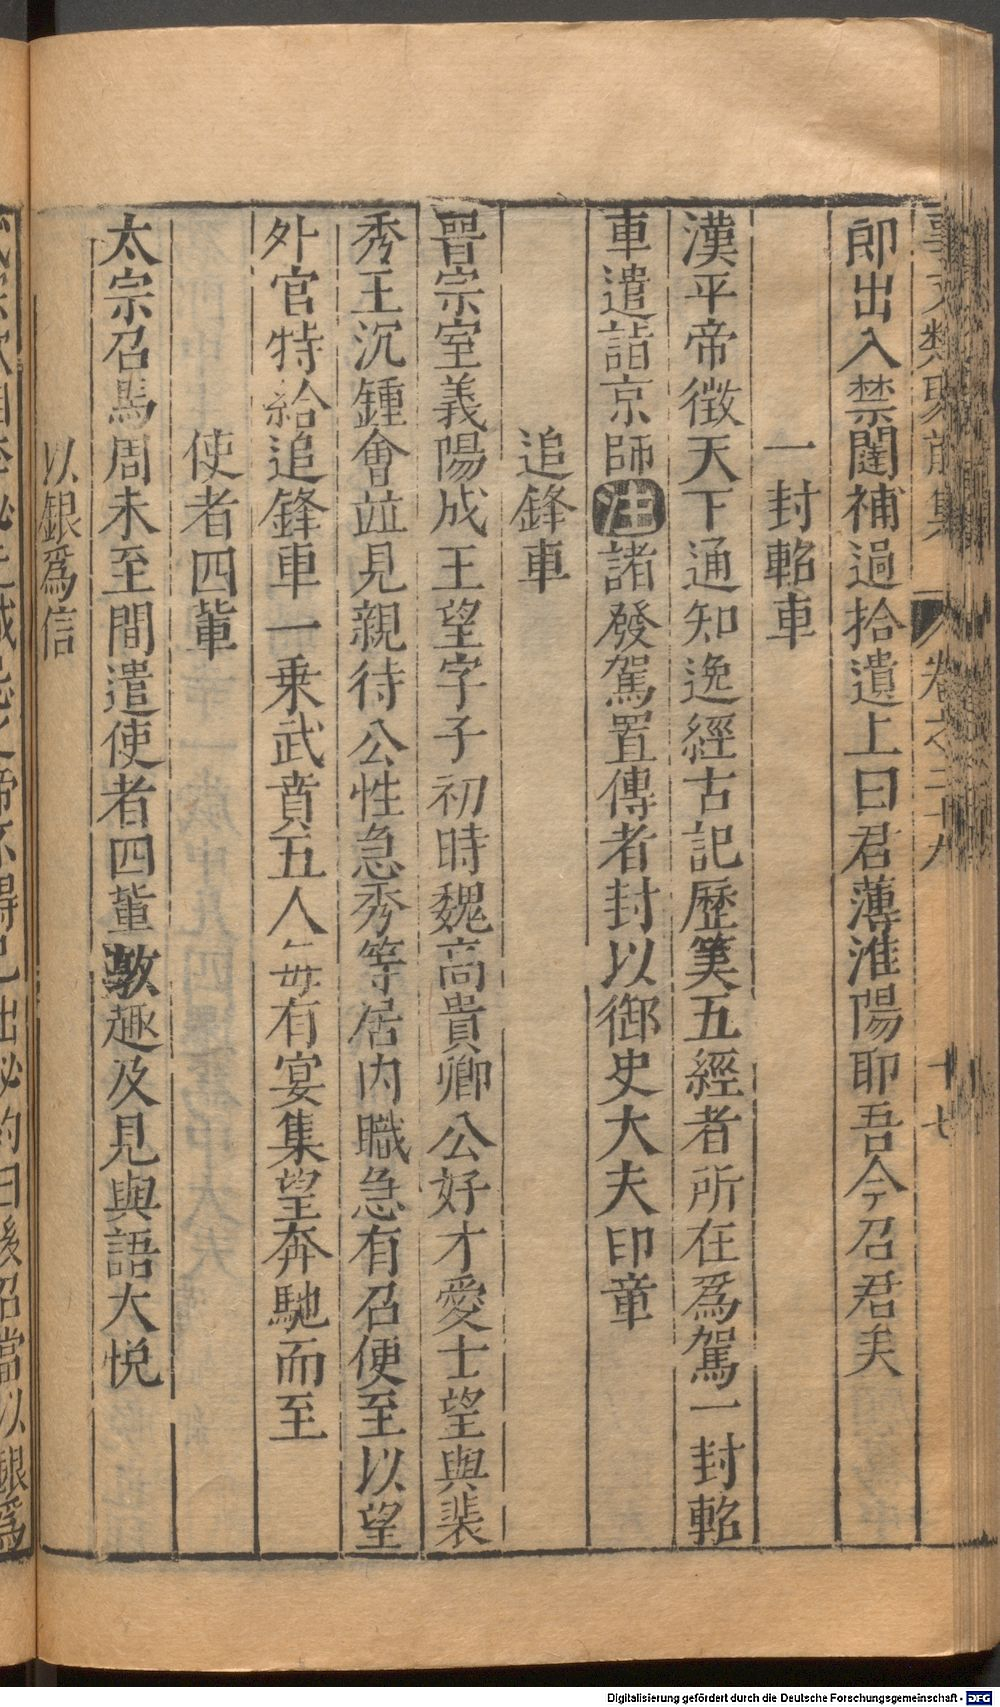 事文類聚前集 卷之二十九 十七
郎出入禁闥補過拾遺上曰君薄淮陽耶吾今召君矣
一封軺車
漢平帝徴天下通知逸經古記歷筭五經者所在爲駕一封軺
車遣詣京師注諸發駕置傳者封以御史大夫印章
追鋒車
晉宗室義陽成王望字子初時魏高貴卿公好才愛士望與裴
秀王沉鍾會竝見親待公性急秀等居内職急有召便至以望
外官特給追鋒車一乘武賁五人每有宴集望奔馳而至
使者四輩
太宗召馬周未至間遣使者四輩敦趣及見與語大悦
以銀爲信
出祕約曰後召當以銀爲
Digitalisierung gefördert durch die Deutsche Forschungsgemeinschaft - DFG